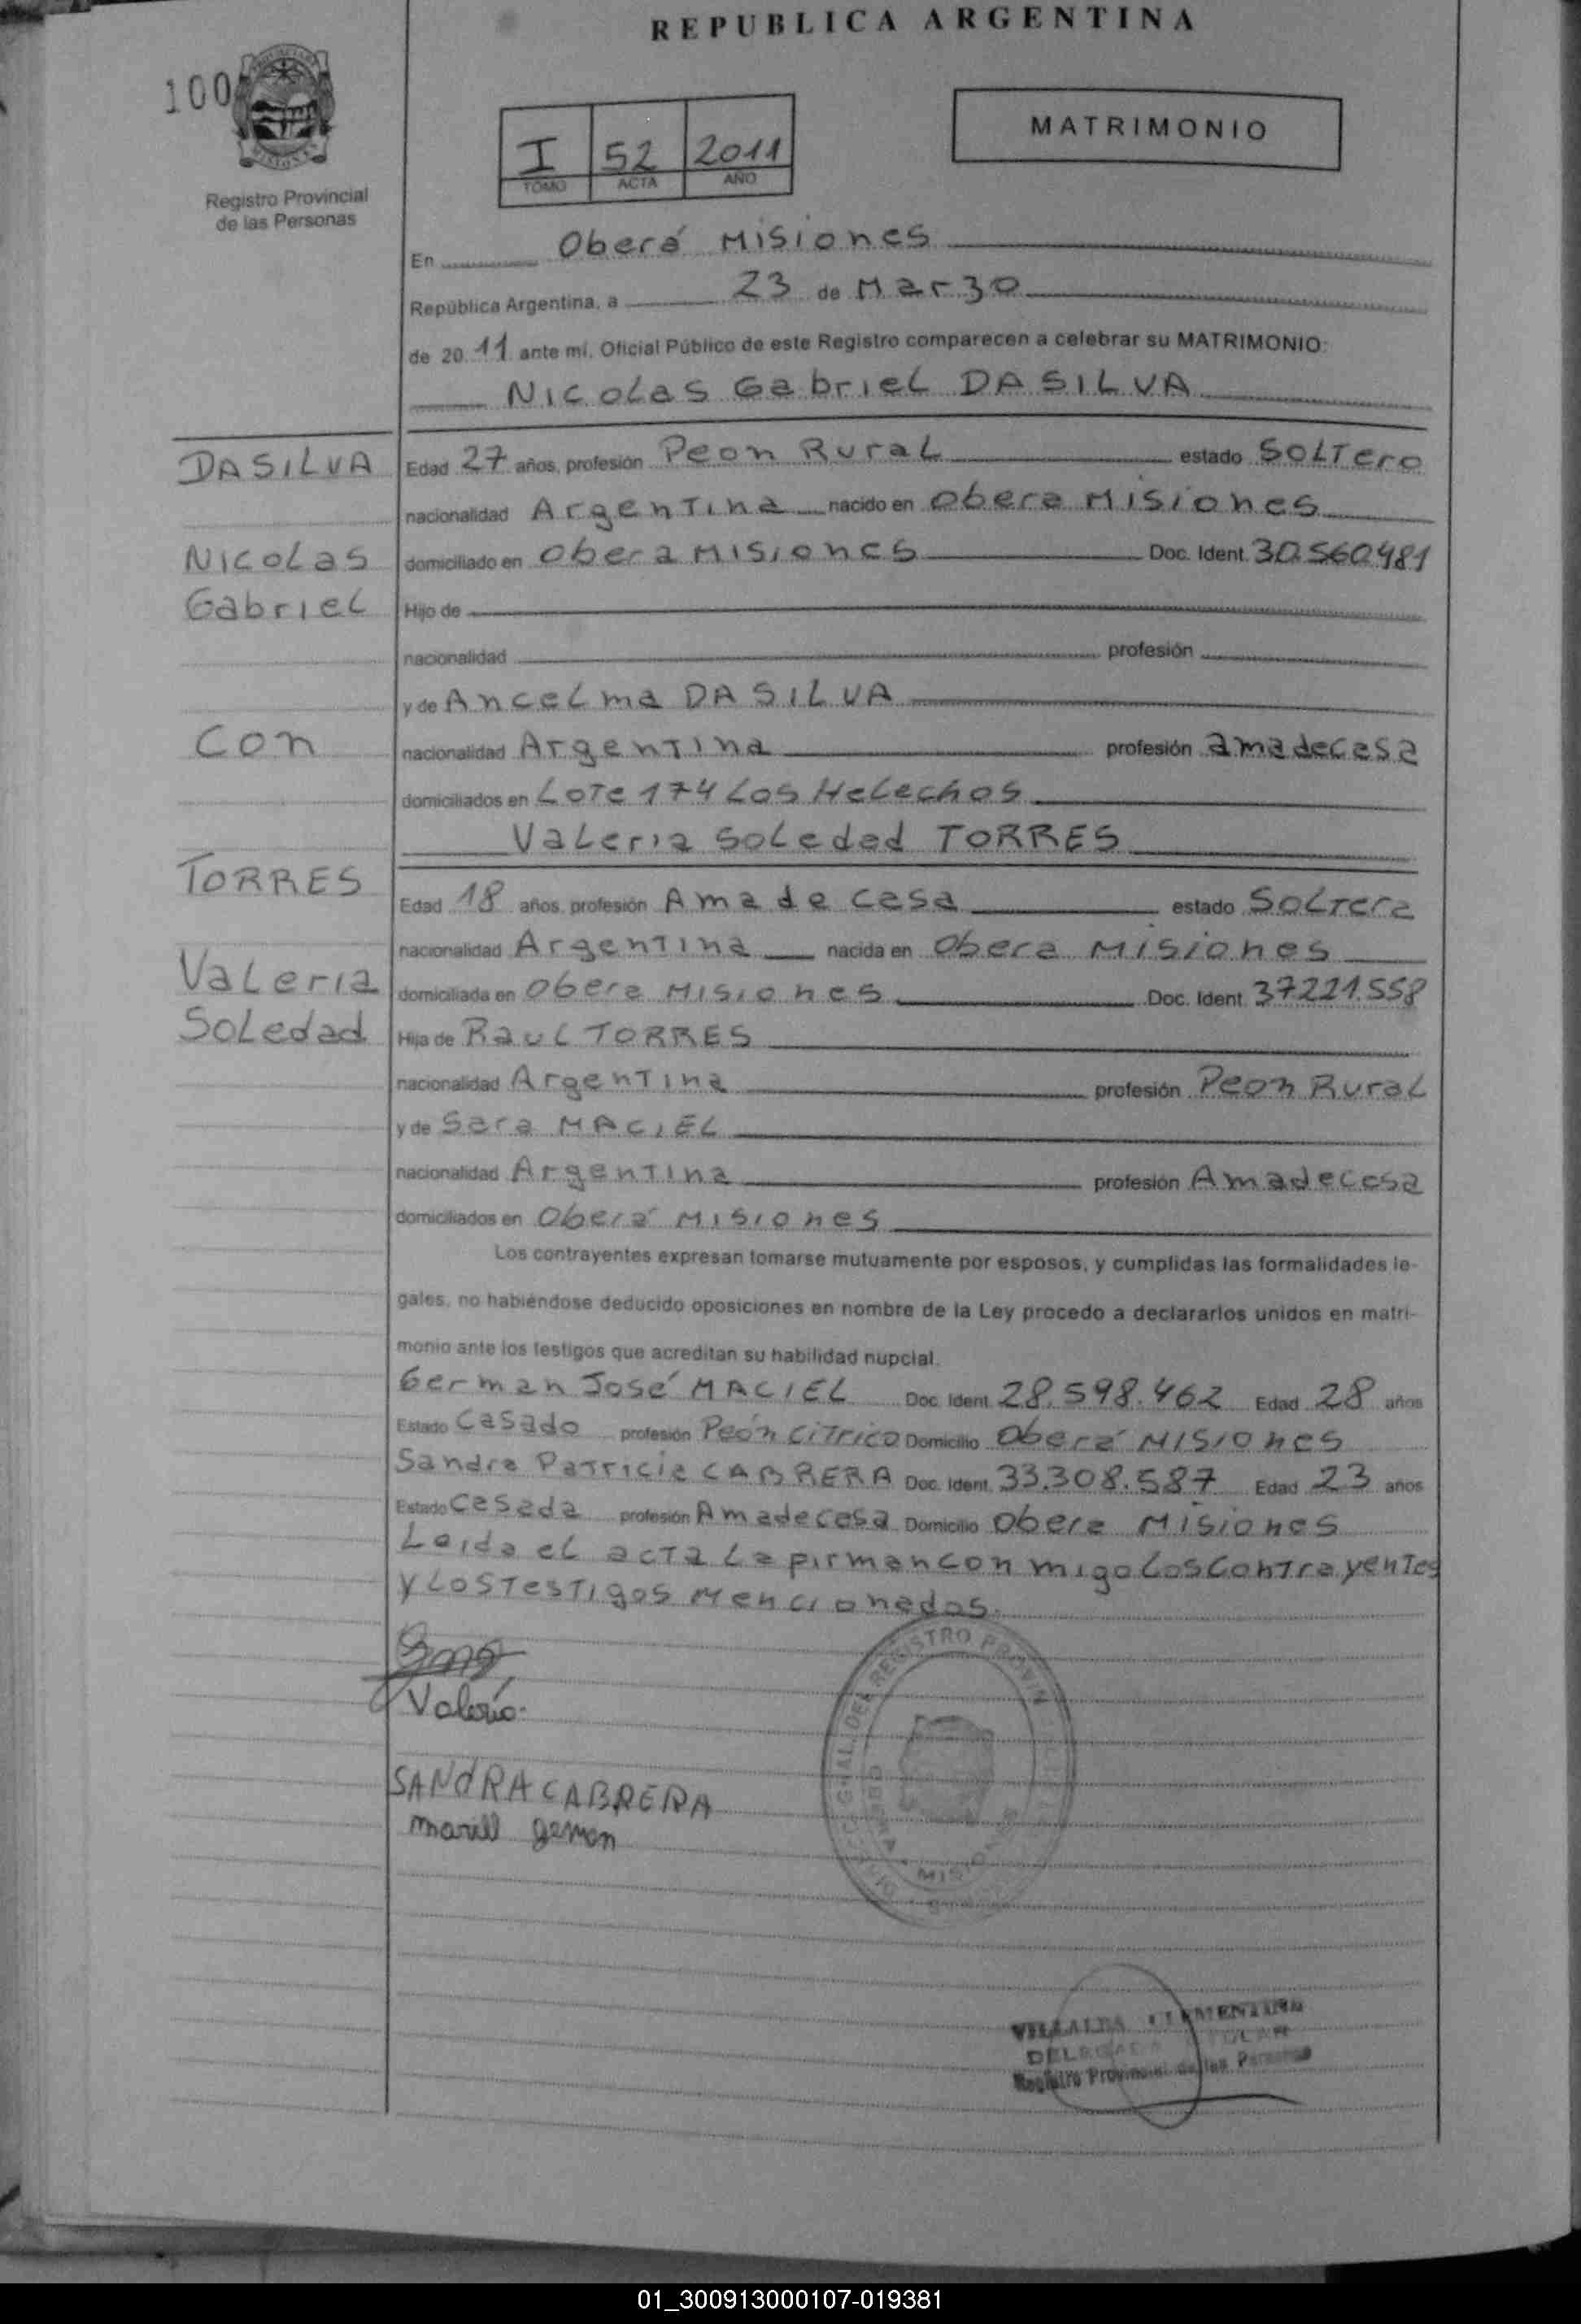 REPUBLICA ARGENTINA
100
Registro Provincial
de las Personas
I 52 2011
TOMO ACTA AÑO
MATRIMONIO
En Oberá Misiones
República Argentina, a 23 de Marzo
de 2011 ante mí, Oficial Público de este Registro comparecen a celebrar su MATRIMONIO:
Nicolas Gabriel DA SILVA
DA SILVA
Nicolas
Gabriel
Con
TORRES
Valeria
Soledad
Edad 27 años, profesión Peon Rural estado Soltero
nacionalidad Argentina nacido en Obera Misiones
domiciliado en Obera Misiones Doc. Ident. 30.560.481
Hijo de
nacionalidad profesión
y de Ancelma DA SILVA
nacionalidad Argentina profesión ama de casa
domiciliados en Lote 174 Los Helechos
Valeria Soledad TORRES
Edad 18 años, profesión Ama de casa estado Soltera
nacionalidad Argentina nacida en Obera Misiones
domiciliada en Obera Misiones Doc. Ident. 37.221.558
Hija de Raul TORRES
nacionalidad Argentina profesión Peon Rural
y de Sara MACIEL
nacionalidad Argentina profesión Ama de casa
domiciliados en Oberá Misiones
Los contrayentes expresan tomarse mutuamente por esposos, y cumplidas las formalidades le-
gales, no habiéndose deducido oposiciones en nombre de la Ley procedo a declararlos unidos en matri-
monio ante los testigos que acreditan su habilidad nupcial.
German José MACIEL Doc. Ident. 28.598.462 Edad 28 años
Estado Casado profesión Peón Citrico Domicilio Oberá Misiones
Sandra Patricia CABRERA Doc. Ident. 33.308.587 Edad 23 años
Estado Casada profesión Ama de casa Domicilio Obera Misiones
Leida el acta la firman con migo los contrayentes
y los testigos mencionados.
Valeria
SANdRA CABRERA
German
VILLALBA CLEMENTINA
Registro Provincial de las Personas
01_300913000107-019381